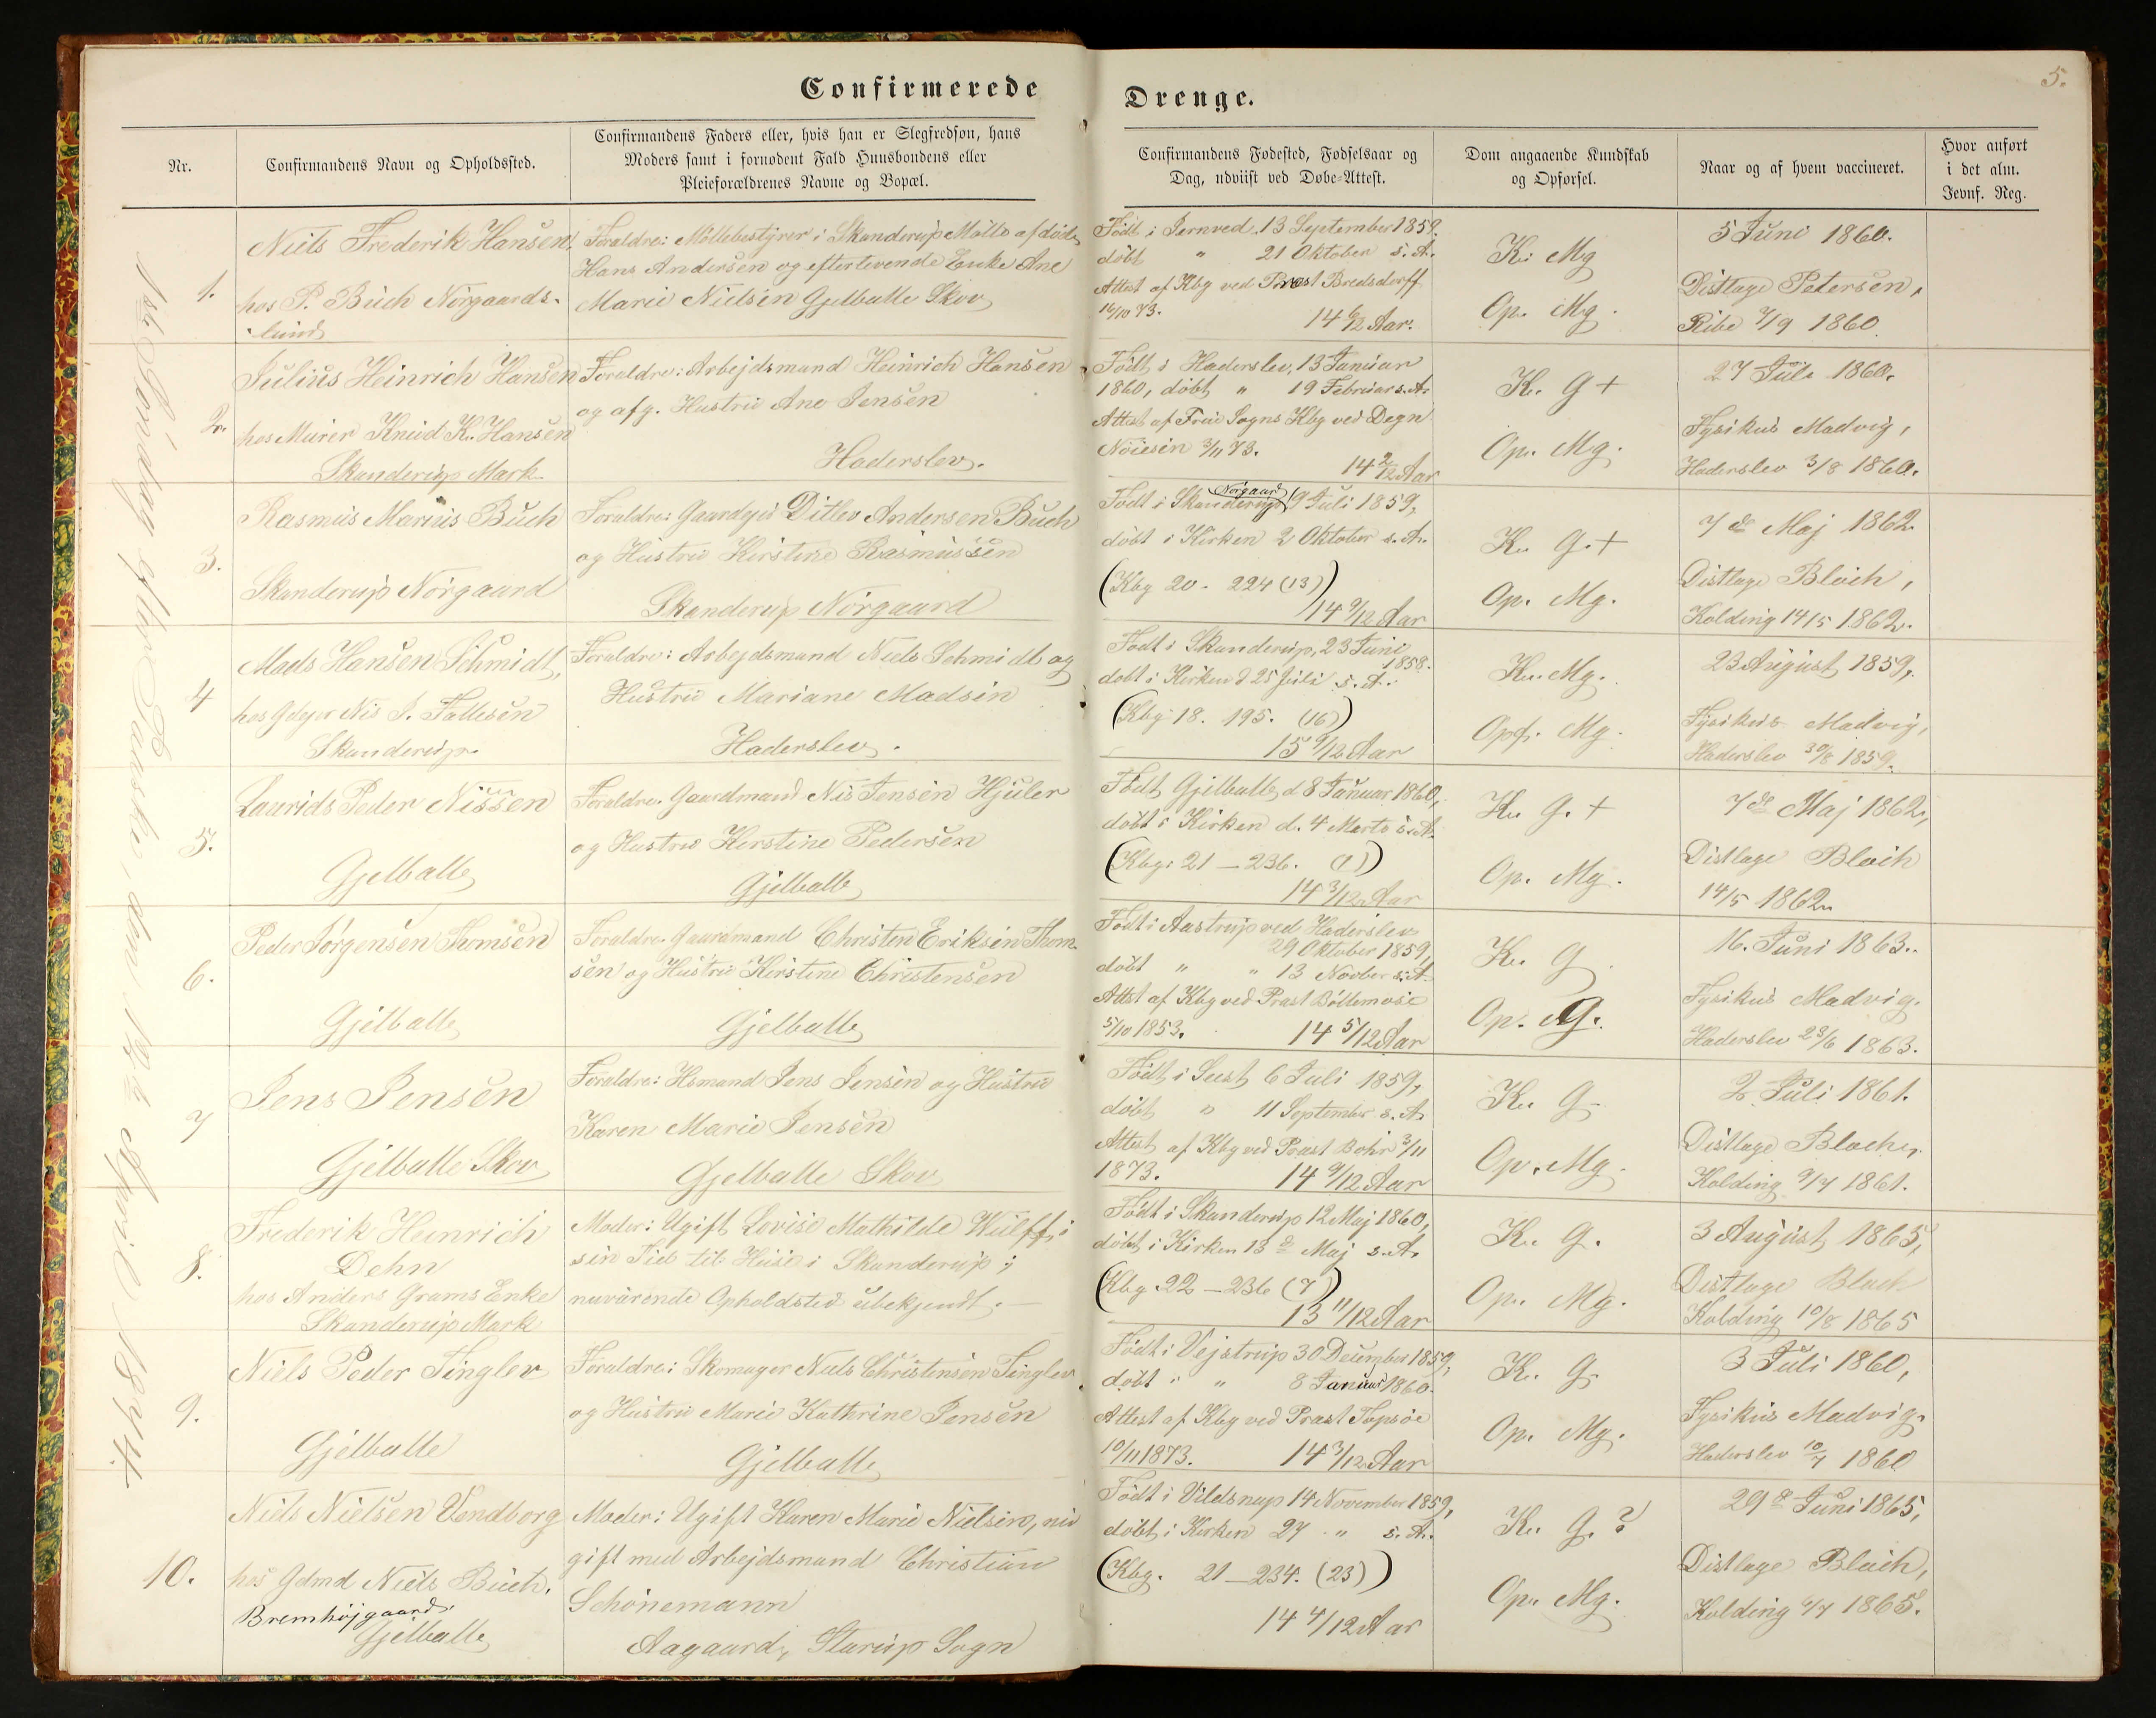 Confirmerede
Drenge.
5.
Nr.
Confirmandens Navn og Opholdssted.
Confirmandens Faders eller, hvis han er Slegfredsøn, hans
Moders samt i fornødent Fald Huusbondens eller
Pleieforældrenes Navne og Bopæl.
Confirmandens Fødested, Fødselsaar og
Dag, udviist ved Døbe-Attest.
Dom angaaende Kundskab
og Opførsel.
Naar og af hvem vaccineret.
Hvor anført
i det alm.
Jevnf. Reg.
1ste Söndag efter Paaske, den 12te April 1874.
1.
Niels Frederik Hansen
hos P. Buch Nörgaards-
lund
Forældre: Möllebestyrer i Skanderup Mölle afdöde
Hans Andersen og efterlevende Enke Ane
Marie Nielsen Gjelballe Skov
Födt i Jernved 13 September 1859.
döbt " 21 Oktober s. A.
Attest af Kbg ved Præst Bredsdorff
16/10 73.
14 6/12 Aar.
K. Mg
Op. Mg.
5 Juni 1860.
Distlæge Petersen,
Ribe 7/9 1860.
2.
Julius Heinrich Hansen
hos Murer Knud K. Hansen
Skanderup Mark
Forældre: Arbejdsmand Heinrich Hansen
og afg. Hustru Ane Jensen
Haderslev.
Födt i Haderslev, 13 Januar
1860, döbt " 19 Februar s. A.
Attest af Frue Sogns Kbg ved Degn
Nöiesen 3/11 73.
14 2/12 Aar
K. G +
Op. Mg.
27 Juli 1860.
Fysikus Madvig,
Haderslev 3/8 1860.
3.
Rasmus Marius Buch
Skanderup Nörgaard
Forældre: Gaardejer Ditlev Andersen Buch
og Hustru Kirstine Rasmussen
Skanderup Nörgaard
Nörgaard
Födt i Skanderup 9 Juli 1859,
döbt i Kirken 2 Oktober s. A.
(Kbg 20 - 224 (13))
14 9/12 Aar
K. G. +
Op. Mg.
7de Maj 1862.
Distlæge Bloch,
Kolding 14/5 1862.
4
Mads Hansen Schmidt,
hos Gdejer Nis J. Fallesen
Skanderup.
Forældre: Arbejdsmand Niels Schmidt og
Hustru Mariane Madsen
Haderslev.
Födt i Skanderup, 23 Juni
1858.
döbt i Kirken d 25 Juli s. A.
(Kbg 18. 195. (16))
15 9/12 Aar
K. Mg.
Opf. Mg.
23 August 1859,
Fysikus Madvig,
Haderslev 30/8 1859.
5.
Laurids Peder Nissen
Gjelballe
Forældre. Gaardmand Nis Jensen Hjuler
og Hustru Kirstine Pedersen
Gjelballe
Födt Gjelballe d 8 Januar 1860,
döbt i Kirken d. 4 Marts s. A.
(Kbg. 21 - 236. (1))
14 3/12 Aar
K. G. +
Op. Mg.
7de Maj 1862,
Distlæge Bloch
14/5 1862.
6.
Peder Jörgensen Thomsen
Gjelballe
Forældre. Gaardmand Christen Eriksen Thom-
sen og Hustru Kirstine Christensen
Gjelballe
Födt i Aastrup ved Haderslev
29 Oktober 1859,
döbt " " 13 Novber s. A.
Attst af Kbg ved Præst Böllemose
5/10 1853.
14 5/12 Aar
K. G.
Op. G.
16. Juni 1863.
Fysikus Madvig.
Haderslev 23/6 1863.
7
Jens Jensen
Gjelballe Skov
Forældre: Hsmand Jens Jensen og Hustru
Karen Marie Jensen
Gjelballe Skov
Födt i Seest 6 Juli 1859,
döbt " 11 September s. A.
Attest af Kbg ved Præst Bohr 3/11
1873.
14 9/12 Aar
K. G-
Op. Mg.
2. Juli 1861.
Distlæge Bloch,
Kolding 9/7 1861.
8.
Frederik Heinrich
Dehn
hos Anders Grams Enke
Skanderup Mark
Moder: Ugift Lovise Mathilde Wulff, i
sin Tid til Huse i Skanderup;
nuværende Opholdsted ubekjendt. —
Födt i Skanderup 12 Maj 1860,
döbt i Kirken 13de Maj s. A.
(Kbg. 22 - 236 (7))
13 11/12 Aar
K. G.
Op. Mg.
3 August 1865,
Distlæge Bloch
Kolding 10/8 1865
9.
Niels Peder Tinglev
Gjelballe
Forældre: Skomager Niels Christensen Tinglev
og Hustru Marie Kathrine Jensen
Gjelballe
Födt i Vejstrup 30 December 1859,
döbt " " 8 Januar 1860.
Attest af Kbg ved Præst Topsöe
10/11 1873.
14 3/12 Aar
K. G.
Op. Mg.
3 Juli 1860,
Fysikus Madvig.
Haderslev 10/7 1860
10.
Niels Nielsen Vondborg
hos Gdmd Niels Buch.
Bremhöjgaard.
Gjelballe
Moder: Ugift Karen Marie Nielsen, nu
gift med Arbejdsmand Christian
Schönemann
Aagaard, Starup Sogn
Födt i Vildsnup 14 November 1859,
döbt i Kirken 27 " s. A.
(Kbg. 21 - 234. (23))
14 4/12 Aar
K. G. ?
Op. Mg.
29de Juni 1865,
Distlæge Bloch,
Kolding 6/7 1865.